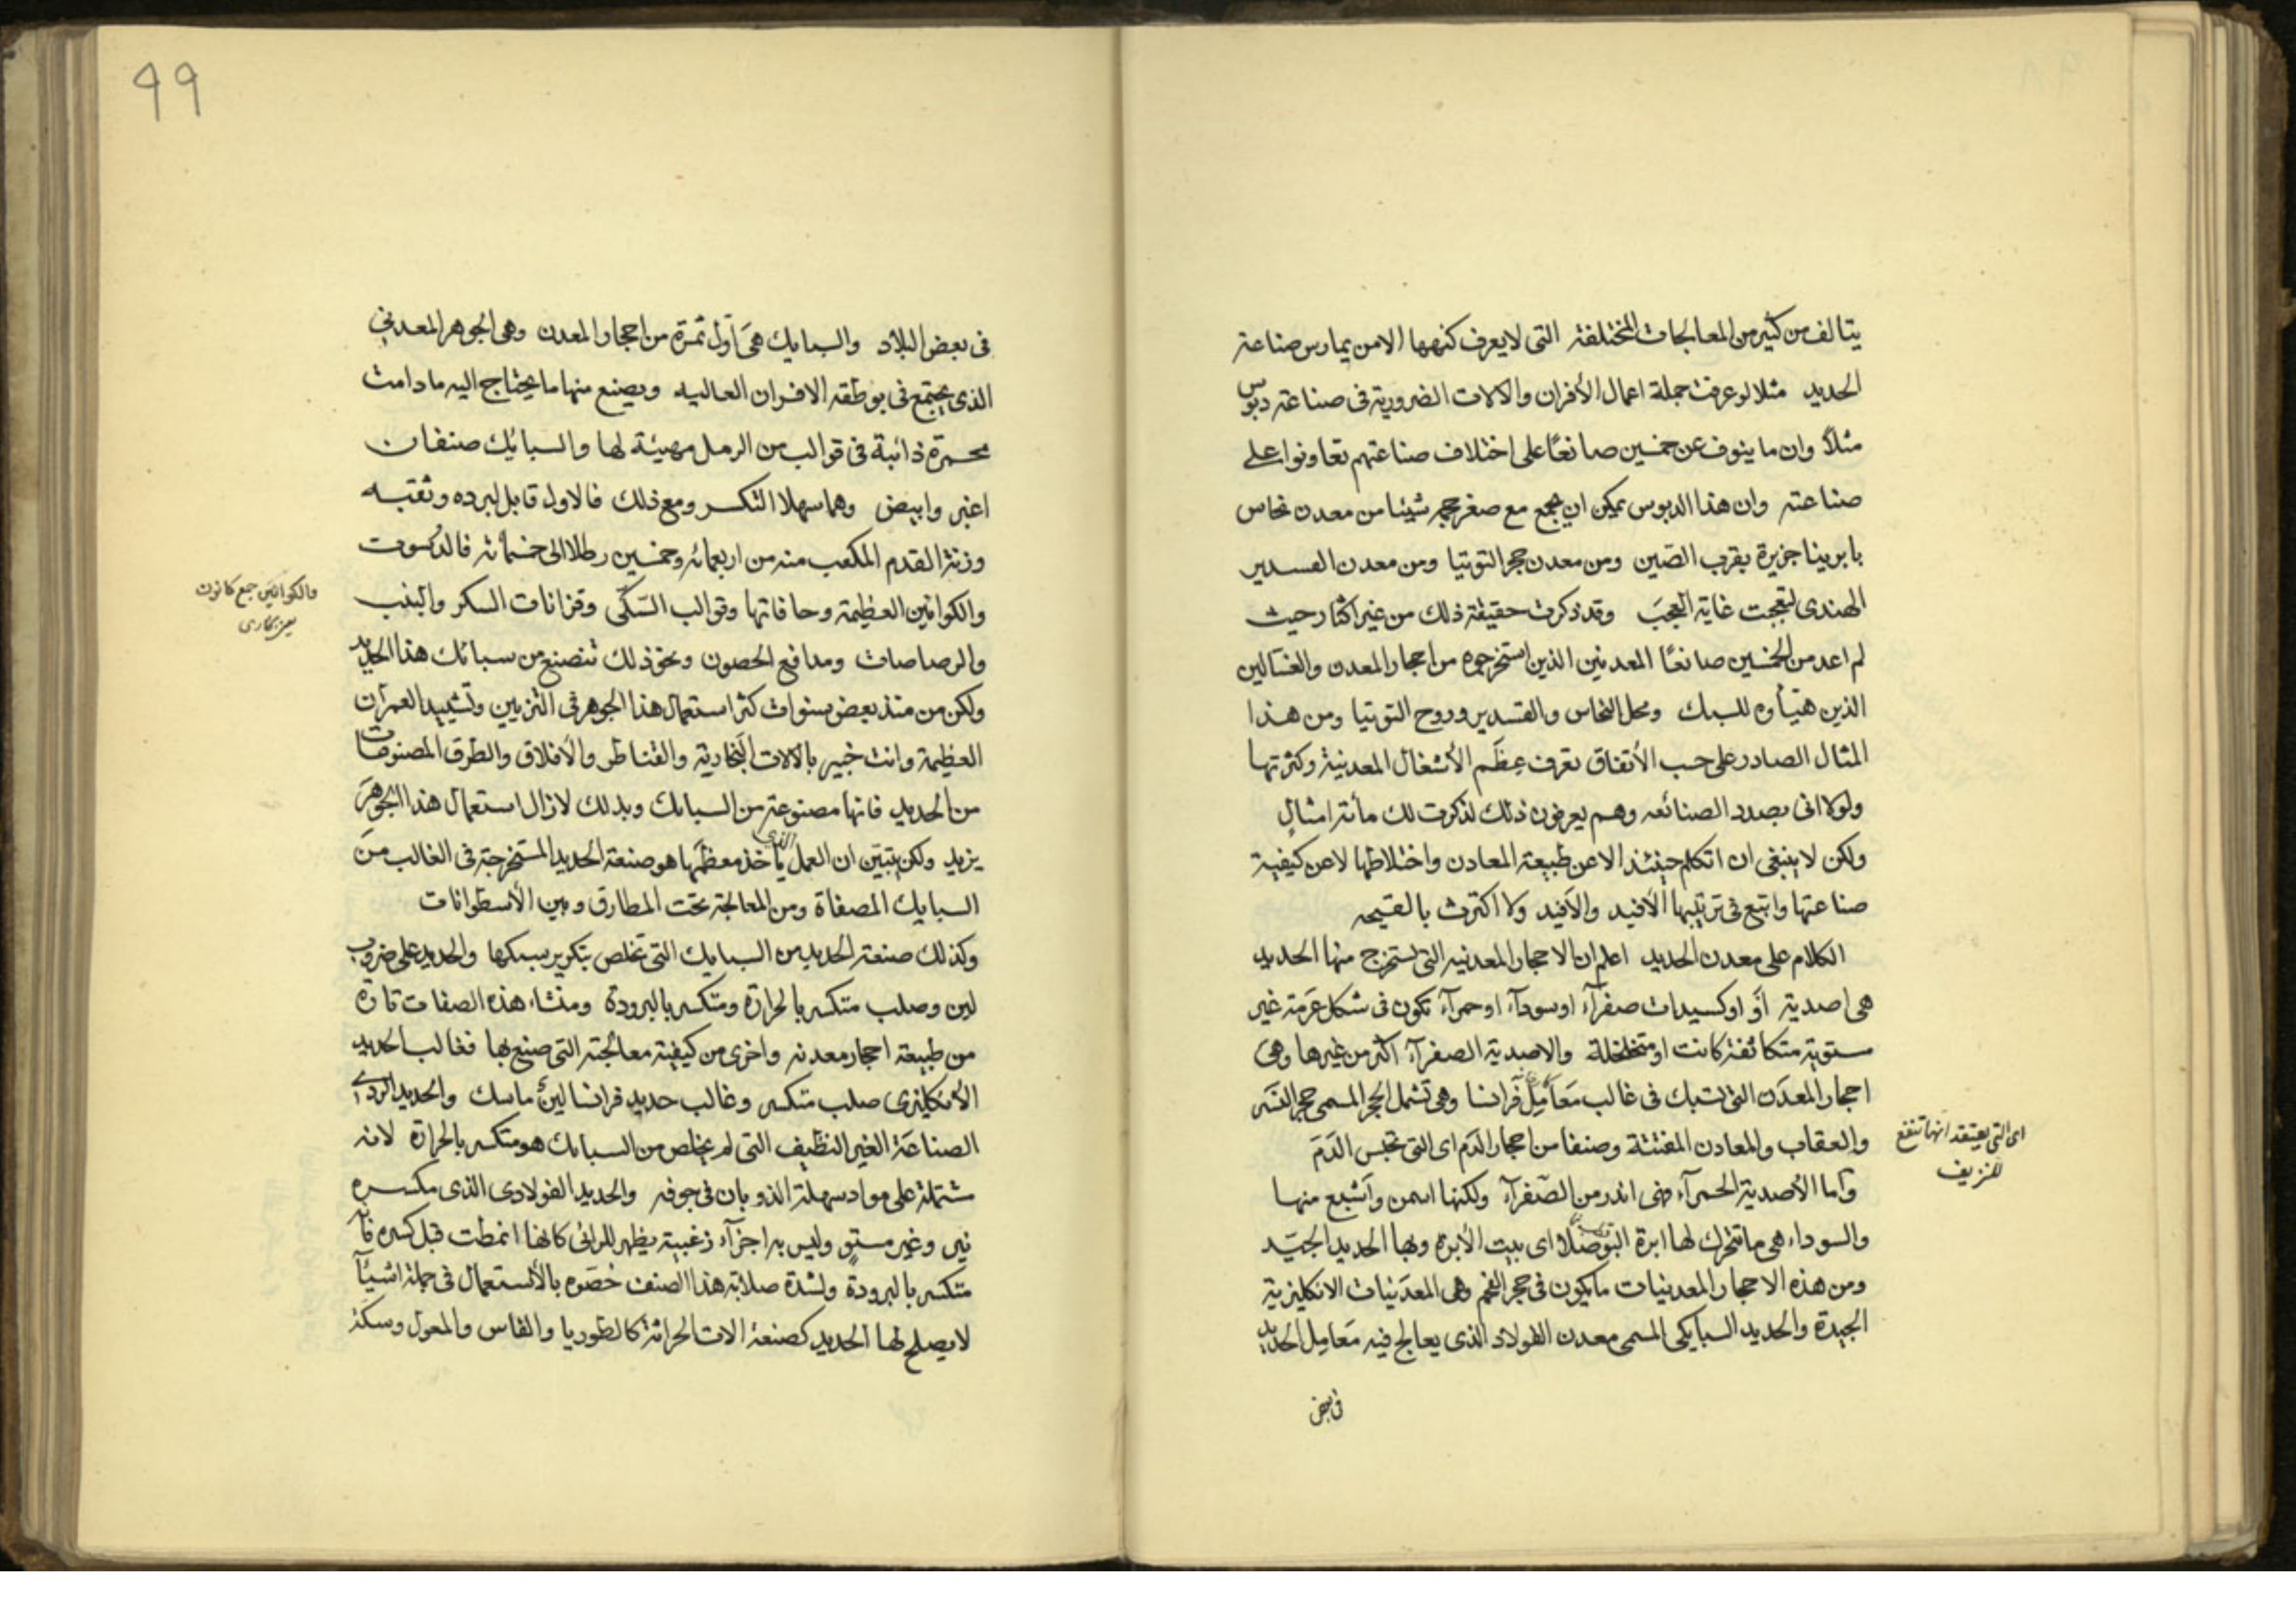 يتالف من كثير من المعالجات المختلفة التى لا يعرف كنهها الا من يمارس صناعة
الحديد مثلا لو عرفت جملة اعمال الأفران والالات الضرورية فى صناعة دبوس
مثلاً وان ما ينوف عن خمسين صانعًا على اختلاف صناعتهم تعاونوا على
صناعته وان هذا الدبوس يمكن ان يجمع مع صغر حجمه شيئا من معدن نحاس
جزيرة بقرب الصّين ومن معدن حجر التوتيا ومن معدن القسدير
الهندى لتعجبت غاية العجبَ وقد ذكرت حقيقة ذلك من غير اكثار حيث
لم اعد من الخمسين صانعًا المعدنين الذين استخرجوه من احجار المعدن والغسّالين
الذين هيّأوه للسبك ومحل النحاس والقسدير وروح التوتيا ومن هذا
المثال الصادر على حسب الأتفاق تعرف عِظَم الأشغال المعدنية وكثرتها
ولولا انى بصدد الصنائعه وهم يعرفون ذلك لذكرت لك مأتة امثالٍ
ولكن لا ينبغى ان اتكلم حينئذ الا عن طبيعة المعادن واختلاطها لا عن كيفية
صناعتها واتبع فى ترتيبها الأفيد والأفيد ولا اكترث بالقيمه
الكلام على معدن الحديد اعلم ان الاحجار المعدنيه التى يستخرج منها الحديد
هى اصدية أوْ اوكسيدات صفرآء او سودآء او حمرآء تكون فى شكل عَرَمة غير
مستوية متكاثفة كانت او متخلخلة والاصدية الصفرآء اكثر من غيرها وهى
احجار المعدَن التى تسبك فى غالب مَعَامِل فَرانسا وهى تشمل الحجر المسمى حجر النسَر
والعقاب والمعادن المفتتة وصنفا من احجار الدَم اى التى تحبس الدَمَ
وأما الأصدية الحمرآء فهى اندر من الصّفرآء ولكنها اسمن وأشبع منها
والسوداء هى ما تتحرك لها ابرة البوصَلا اى بيت الأبرة وبها الحديد الجيّد
ومن هذه الاحجار المعدنيات ما يكون فى حجر الفحم وهى المعدَنيات الانكليزية
الجيدة والحديد السبايكى المسمى معدن الفولاد الذى يعالج فيه مَعامِل الحديد
فى بعض
اى التى يعتقد انها تنفع
للنزيف
99
فى بعض البلاد والسبايك هىَ أوّل ثمرة من احجار المعدن وهى الجوهر المعدنى
الذى يجتمع فى بوطقه الافران العاليه ويصنع منها ما يحتاج اليه ما دامت
محمرة ذائبة فى قوالب من الرمل مهيئة لها والسبائك صنفان
اغبر وابيض وهما سهلا التكسر ومع ذلك فالاول قابل لبرده وثقبه
وزنة القدم المكعب منه من اربعمائه وخمسين رطلا الى خمسمائة
والكوانين العظيمة وحافاتها وقوالب السّكّى وقزانات السكر
والرصاصات ومدافع الحصون ونحو ذلك تنصنع من سبائك هذا الحديد
ولكن من منذ بعض سنوات كثر استعمال هذا الجوهر فى التزيين وتشييد العمران
العظيمة وانت خبير بالالات البَخارية والقناطر والأفلاق والطرق المصنوعات
من الحديد فانها مصنوعة من السبايك وبذلك لازال استعمال هذا الجوهرَ
يزيد ولكن يتبيّن ان العمل الذى يأخذ معظمَها هو صنعة الحديد المستخرجة فى الغالب منَ
السبايك المصفاة ومن المعالجة تحت المطارق وبين الأسطوانات
وكذلك صنعة الحديد من السبايك التى تخلص بتكرير سبكها والحديد على ضروب
لين وصلب متكسر بالحرارة ومتكسر بالبرودة ومنشاء هذه الصفات تارة
من طبيعة احجار معدنه واخرى من كيفية معالجته التى صنع بها فغالب الحديد
الأنكليزى صلب متكسر وغالب حديد فرانسا لينٌ ماسك والحديد الردى
الصناعَة الغير النظيف التى لم يخلص من السبايك هو متكسر بالحرارة لانه
مشتملة على مواد سهلة الذوبان فى جوفه والحديد الفولادى الذى مكسره
نير وغير مستوٍ وليس به اجزآء زغبية يظهر للرائى كانها انمطت قبل كسره فأنه
متكسر بالبرودة ولشدة صلابة هذا الصنف خصّوه بالأستعمال فى جملة اشيآء
لا يصلح لها الحديد كصنعة الات الحراثة كالطوريا والفاس والمعول وسكة
والكوانين جمع كانون